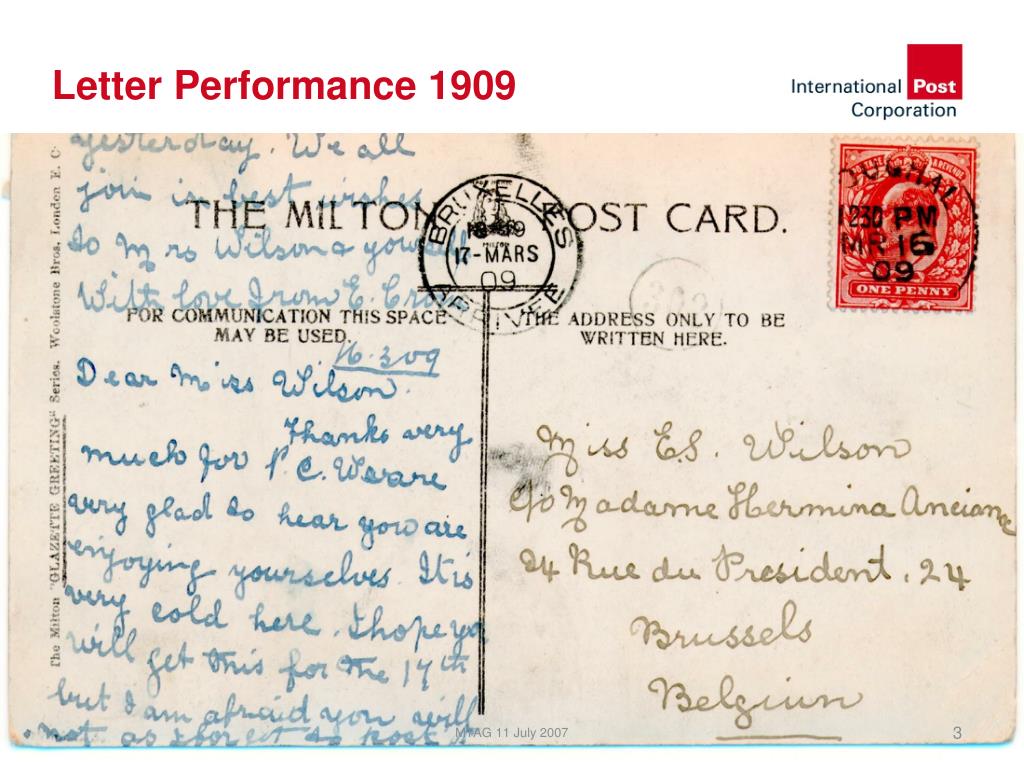 Letter Performance 1909
International Post
Corporation
yesterday. We all
join in best wishes
to Mrs Wilson & yourself
With love from E.
THE MILTON POST CARD.
BRUXELLES
17-MARS
09
ARRIVEE
YOUGHAL
1230 PM
MR 16
09
ONE PENNY
FOR COMMUNICATION THIS SPACE
MAY BE USED.
THE ADDRESS ONLY TO BE
WRITTEN HERE.
16.3.09
Dear Miss Wilson.
Thanks very
much for P.C. We are
very glad to hear you are
enjoying yourselves. It is
very cold here. I hope you
will get this for the 17th
but I am afraid you will
not as I forgot to post it
Miss E.S. Wilson
c/o Madame Hermina Anciane
24 Rue du President, 24
Brussels
Belgium
The Milton "GLAZETTE GREETING" Series. Woolstone Bros, London E. C.
MTAG 11 July 2007
3